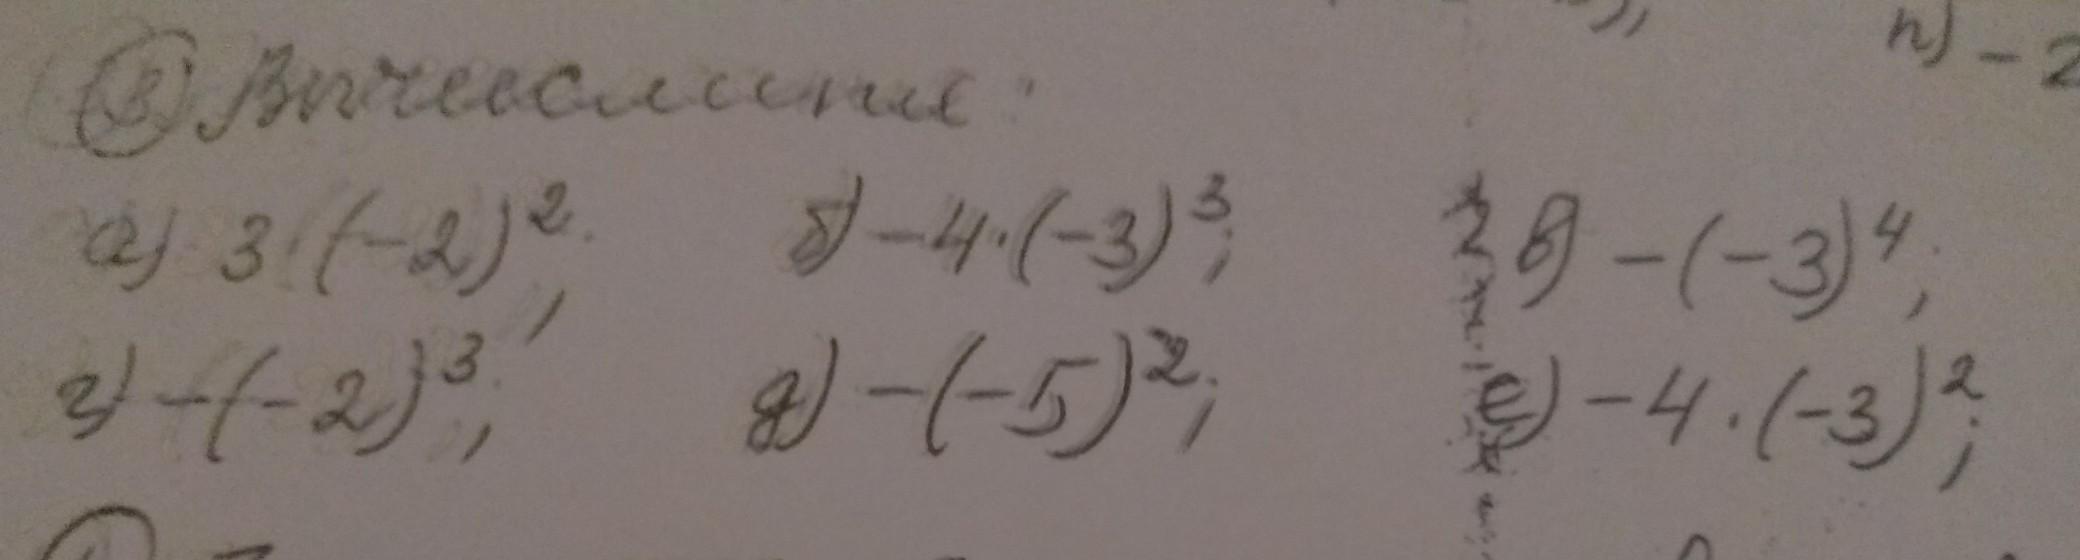 п) -2
③ Вычислите:
а) 3·(-2)²; б) -4·(-3)³; в) -(-3)⁴;
г) -(-2)³; д) -(-5)²; е) -4·(-3)²;